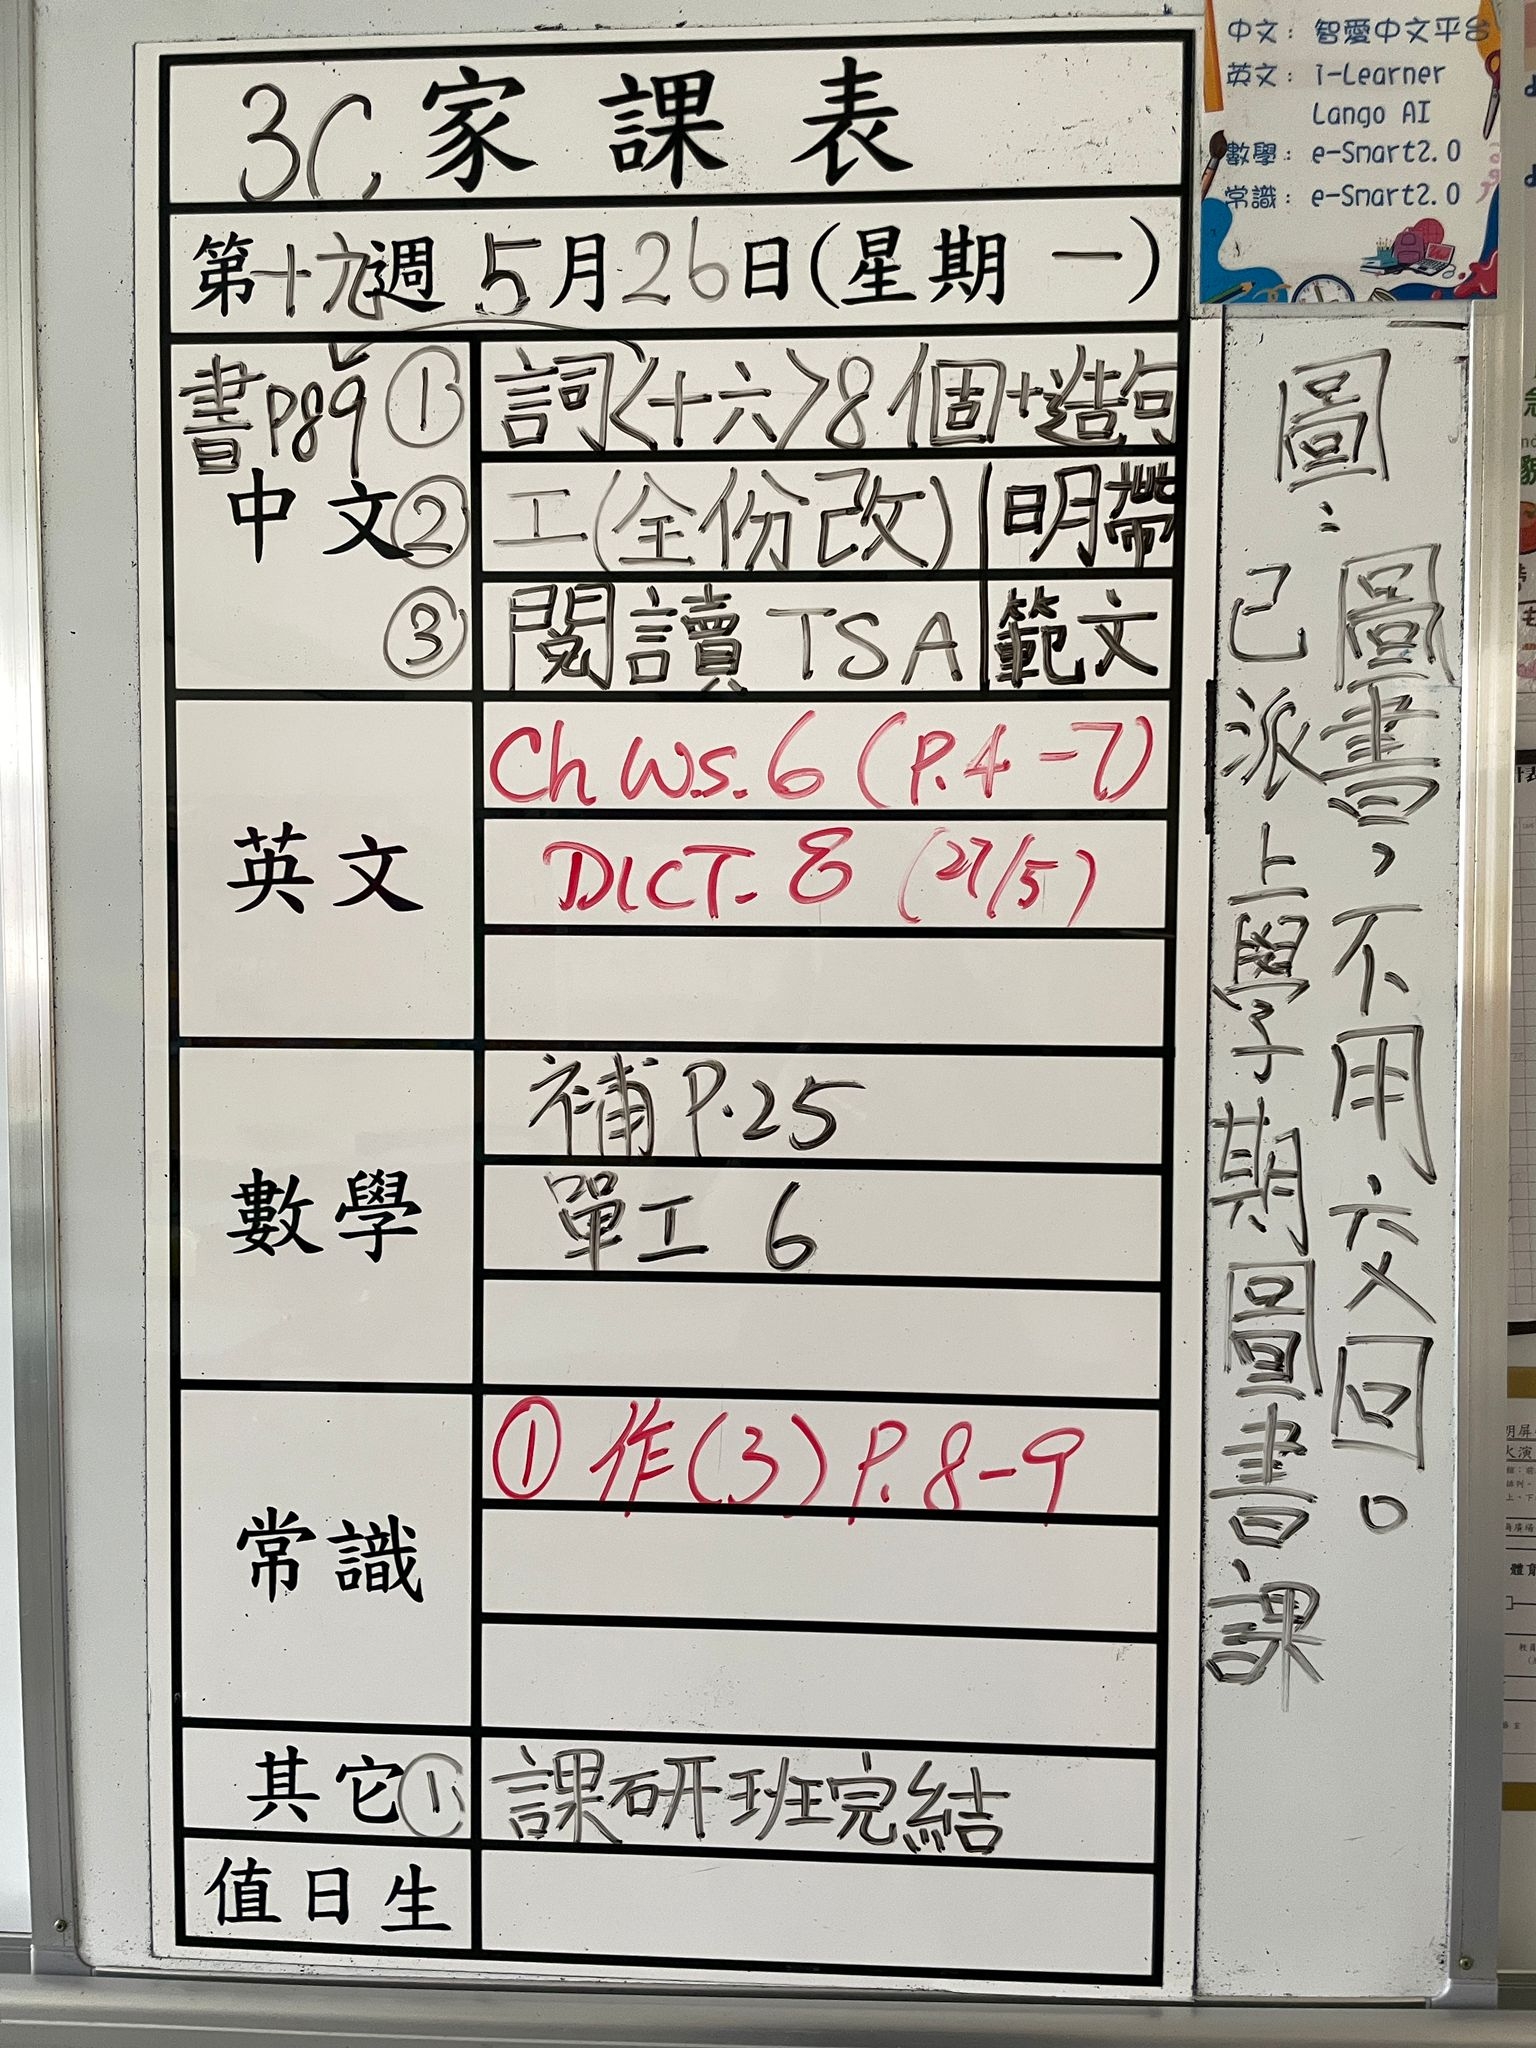 3C 家課表
第十九週 5月26日(星期一)
書P89 ① 詞<十六>8個+造句
中文 ② 工(全份改) 明帶
③ 閱讀TSA 範文
英文
Ch W.S. 6 (P.4-7)
DICT. 8 (27/5)
數學
補P.25
單工 6
常識
① 作(3) P.8-9
其它 ① 課研班完結
值日生
圖:已派上學期圖書課
圖書,不用交回。
中文:智愛中文平台
英文:i-Learner
Lango AI
數學:e-Smart2.0
常識:e-Smart2.0